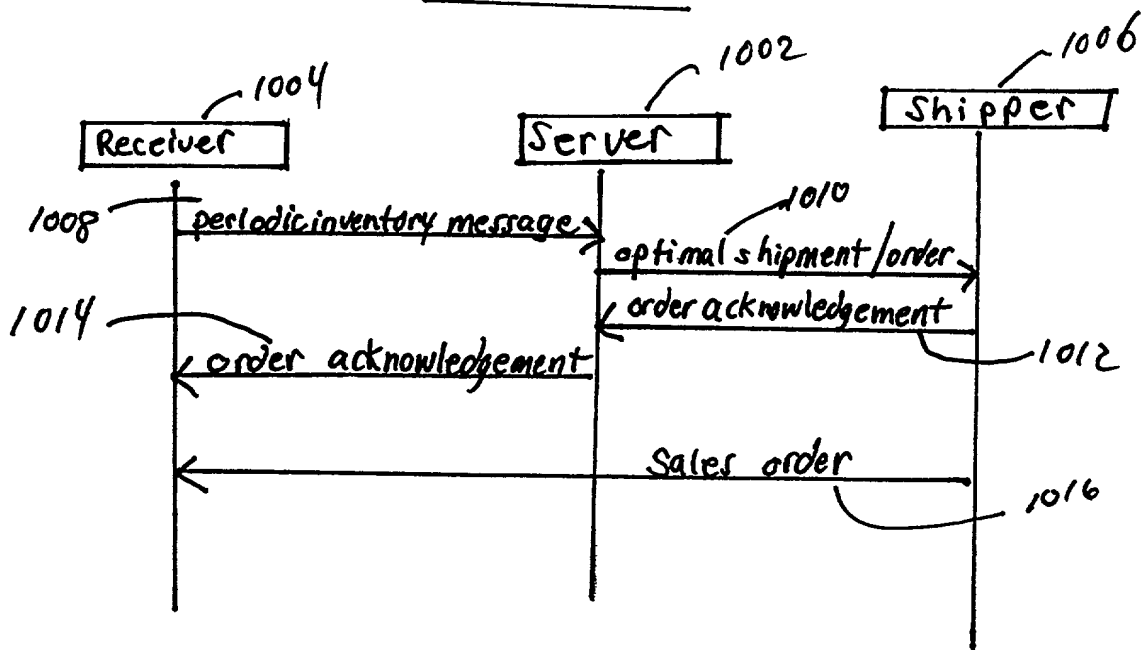 1004
1002
1006
Receiver
Server
Shipper
1008
periodic inventory message
1010
optimal shipment/order
1014
order acknowledgement
1012
order acknowledgement
Sales order
1016